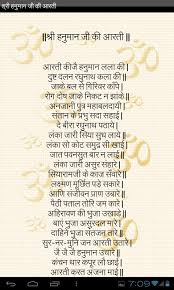 श्री हनुमान जी की आरती
||श्री हनुमान जी की आरती||
आरती कीजै हनुमान लला की |
दुष्ट दलन रघुनाथ कला की |
जाके बल से गिरिवर कांपे |
रोग दोष जाके निकट न झांके |
अनजानी पुत्र महाबलदायी |
संतान के प्रभु सदा सहाई |
दे बीरा रघुनाथ पठाये |
लंका जारी सिया सुध लाये |
लंका सो कोट समुद्र सी खाई |
जात पवनसुत बार न लाई |
लंका जारी असुर संहारे |
सियारामजी के काज संवारे |
लक्ष्मण मूर्छित पड़े सकारे |
आणि संजीवन प्राण उबारे |
पैठी पताल तोरि जम कारे |
अहिरावन की भुजा उखाड़े |
बाएं भुजा असुरदल मारे |
दाहिने भुजा संतजन तारे |
सुर-नर-मुनि जन आरती उतारे |
जै जै जै हनुमान उचारे |
कंचन थार कपूर लौ छाई |
आरती करत अंजना माई |
7:09